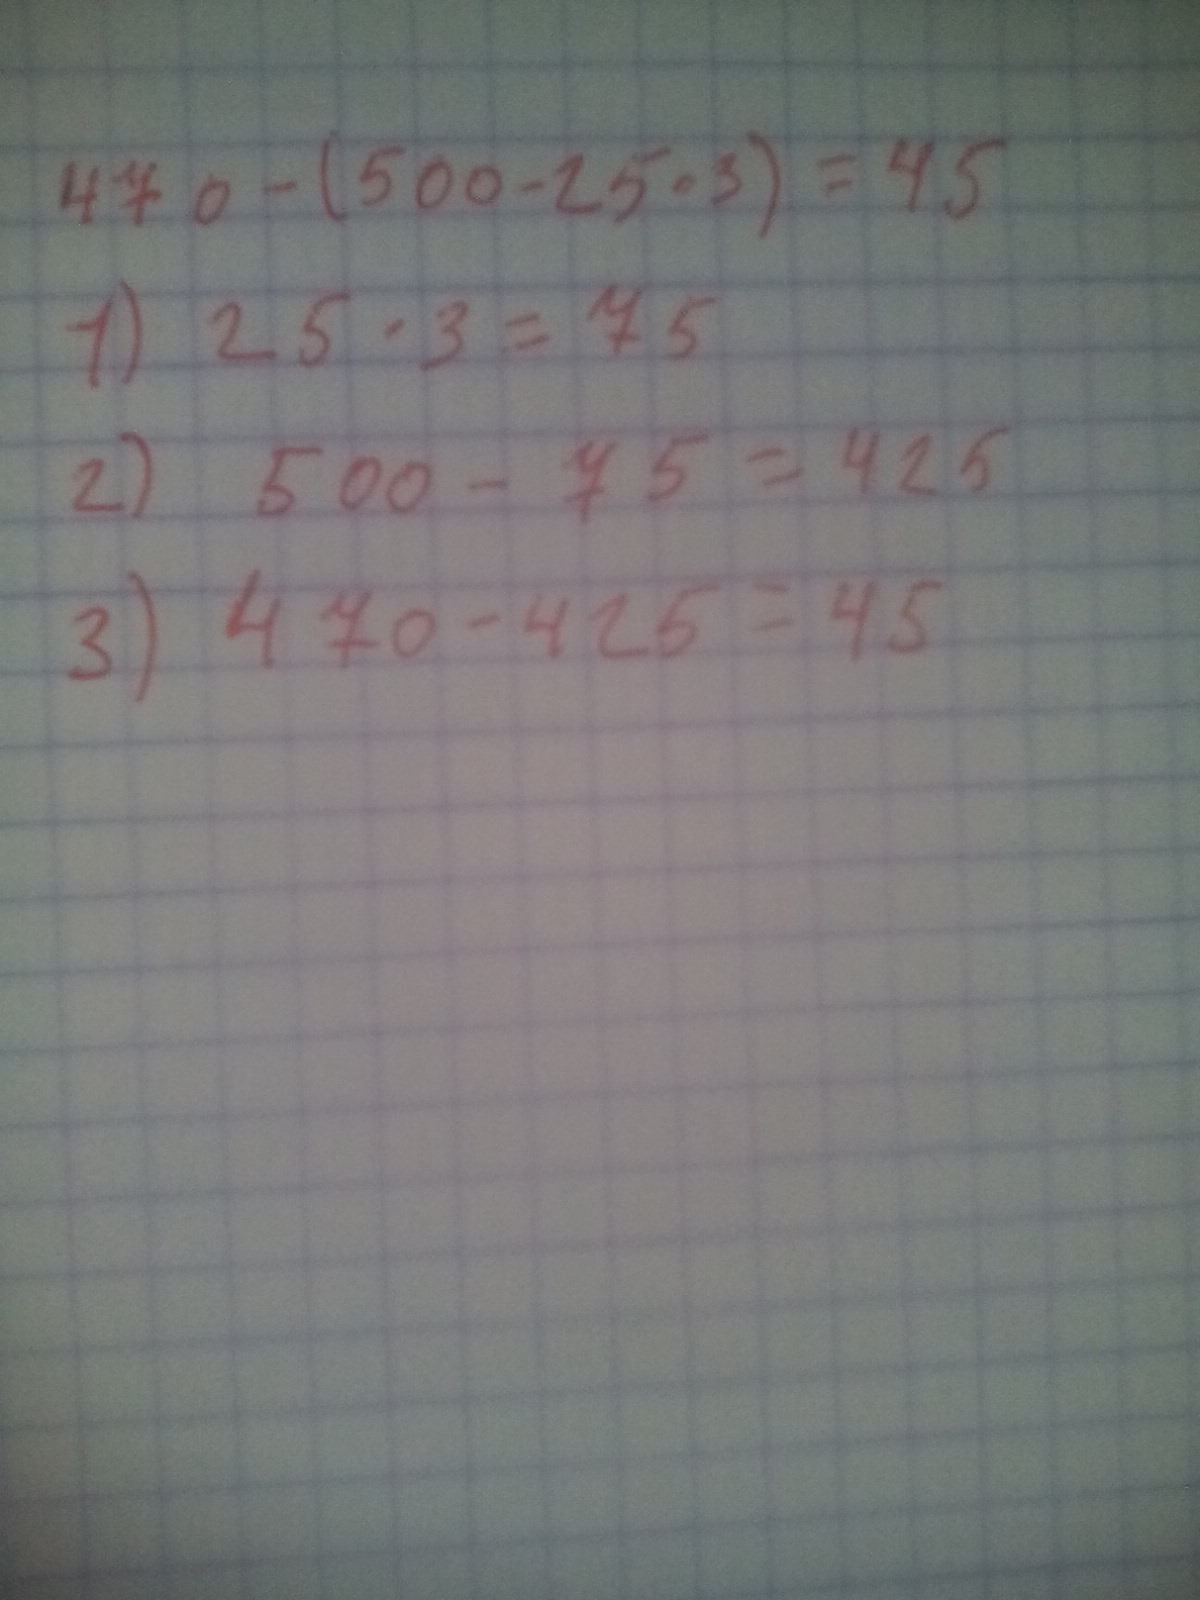 470-(500-25·3)=45
1) 25·3=75
2) 500-75=425
3) 470-425=45